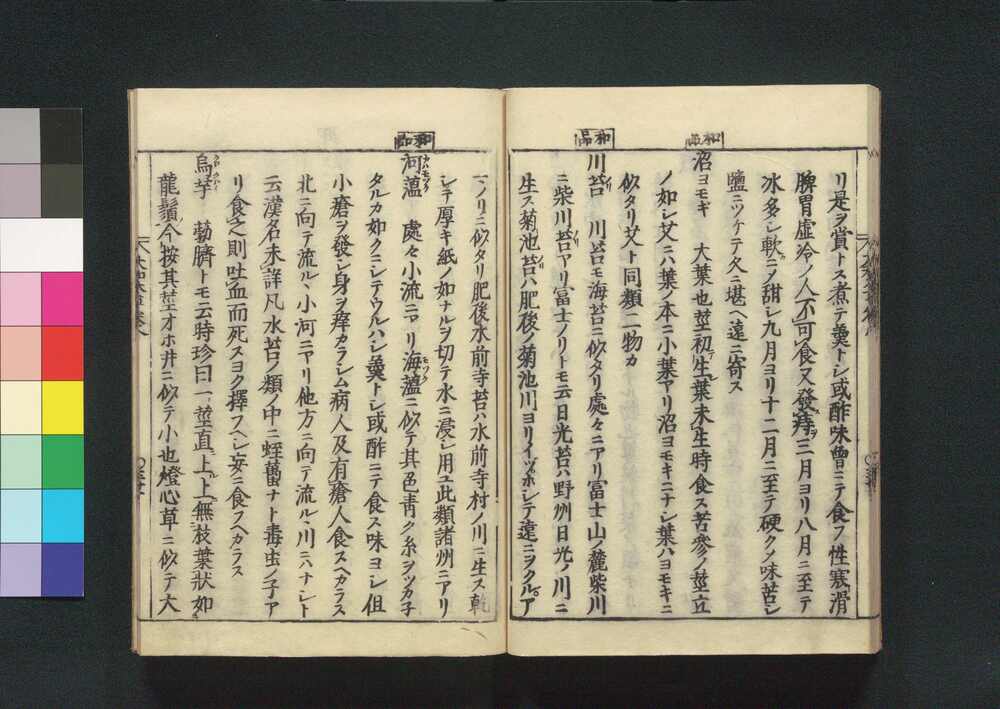 リ是ヲ賞トス煮テ羹トシ或酢味噌ニテ食フ性寒滑
脾胃虚冷ノ人不可食又發痔三月ヨリ八月ニ至テ
冰多シ軟ニノ甜シ九月ヨリ十二月ニ至テ硬クノ味苦シ
鹽ニツケテ久ニ堪ヘ遠ニ寄ス
和品
沼ヨモギ 大葉也莖ニ初生葉未生時食ス苦參ノ莖立
ノ如シ艾ニハ葉ノ本ニ小葉アリ沼ヨモキニナシ葉ハヨモキニ
似タリ艾ト同類二物カ
和品
川苔 川苔モ海苔ニ似タリ處々ニアリ富士山ノ麓柴川
ニ柴川苔アリ富士ノリトモ云日光苔ハ野州日光ノ川ニ
生ス菊池苔ハ肥後ノ菊池川ヨリイツホシテ遠ニヲクルア
ニノリニ似タリ肥後水前寺苔ハ水前寺村ノ川ニ生ス乾
シテ厚キ紙ノ如ナルヲ切テ水ニ浸シ用ユ此類諸州ニアリ
和品
河薀 處々小流ニアリ海薀ニ似テ其色青ク糸ヲツカ子
タルカ如クニシテウルハシ羹トシ或酢ニテ食ス味ヨシ但
小瘡ヲ發シ身ヲ痒カラシム病人及有瘡人食スヘカラス
北ニ向テ流ルヽ小河ニアリ他方ニ向テ流ルヽ川ニハナシト
云漢名未詳凡水苔ノ類ノ中ニ蛭蠆ナト毒虫ノ子ア
リ食之則吐血而死スヨク擇フヘシ妄ニ食フヘカラス
烏芋 葧臍トモ云時珍曰一莖直上上無枝葉狀如
龍鬚今按其莖オホ井ニ似テ小也燈心草ニ似テ大